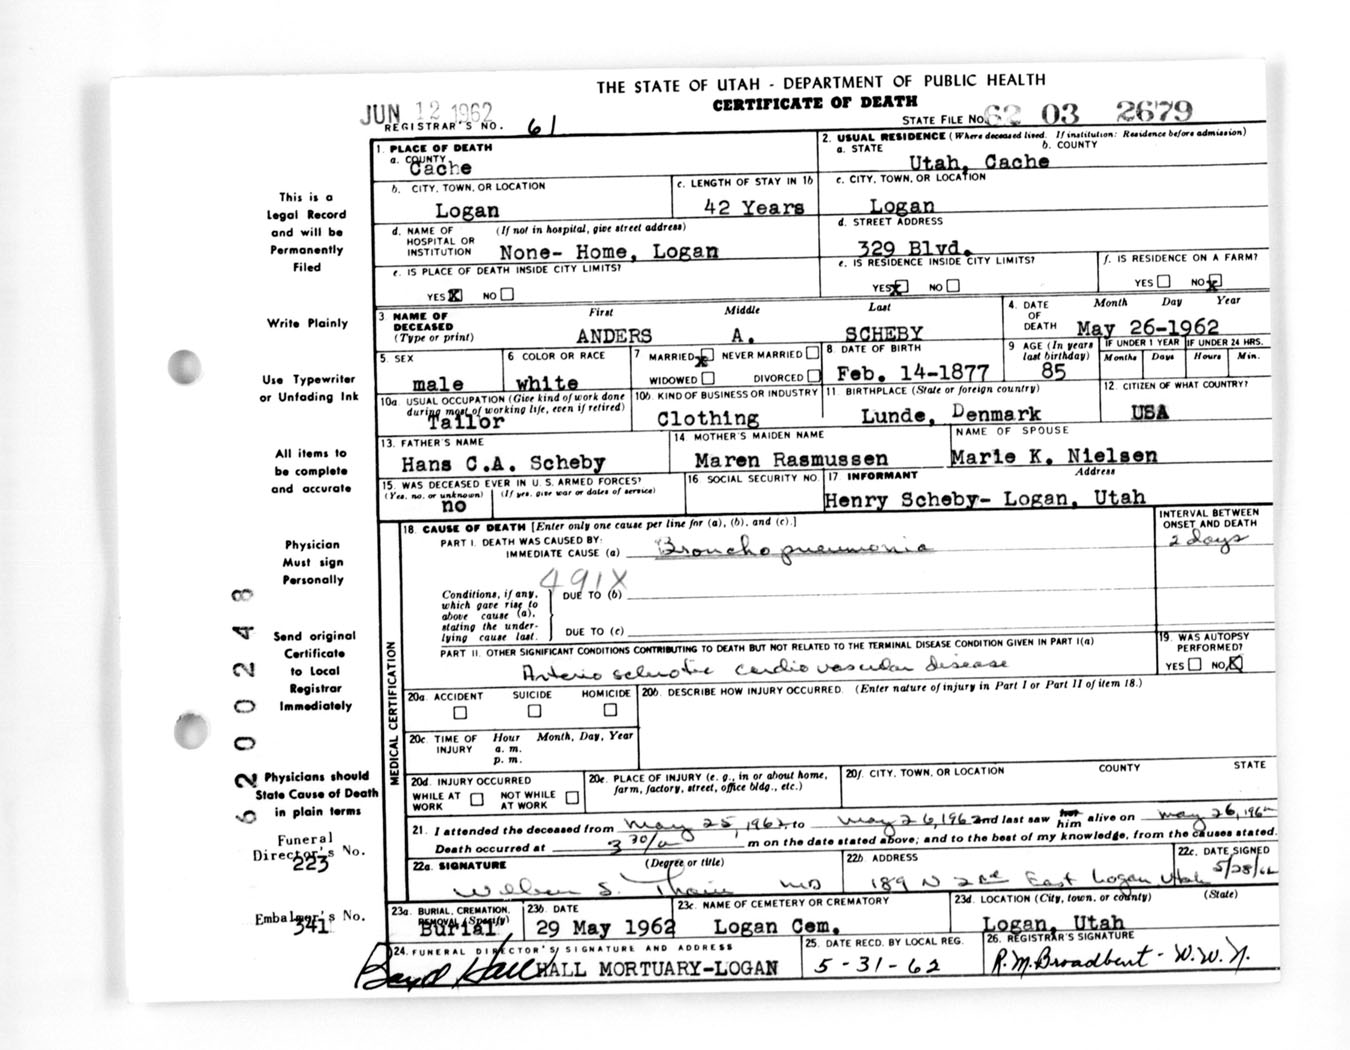 THE STATE OF UTAH - DEPARTMENT OF PUBLIC HEALTH
CERTIFICATE OF DEATH
JUN 12 1962
REGISTRAR'S NO. 61
STATE FILE NO. 62 03 2679
1. PLACE OF DEATH
a. COUNTY
Cache
2. USUAL RESIDENCE (Where deceased lived. If institution: Residence before admission)
a. STATE b. COUNTY
Utah, Cache
b. CITY, TOWN, OR LOCATION
Logan
c. LENGTH OF STAY IN 1b
42 Years
c. CITY, TOWN, OR LOCATION
Logan
d. NAME OF HOSPITAL OR INSTITUTION (If not in hospital, give street address)
None- Home, Logan
d. STREET ADDRESS
329 Blvd.
e. IS PLACE OF DEATH INSIDE CITY LIMITS?
YES X NO
e. IS RESIDENCE INSIDE CITY LIMITS?
YES x NO
f. IS RESIDENCE ON A FARM?
YES NO x
3 NAME OF DECEASED (Type or print)
First Middle Last
ANDERS A. SCHEBY
4. DATE OF DEATH Month Day Year
May 26-1962
5. SEX
male
6 COLOR OR RACE
white
7 MARRIED x NEVER MARRIED
WIDOWED DIVORCED
8. DATE OF BIRTH
Feb. 14-1877
9 AGE (In years last birthday)
85
IF UNDER 1 YEAR IF UNDER 24 HRS.
Months Days Hours Min.
10a. USUAL OCCUPATION (Give kind of work done during most of working life, even if retired)
Tailor
10b. KIND OF BUSINESS OR INDUSTRY
Clothing
11 BIRTHPLACE (State or foreign country)
Lunde, Denmark
12. CITIZEN OF WHAT COUNTRY?
USA
13. FATHER'S NAME
Hans C.A. Scheby
14 MOTHER'S MAIDEN NAME
Maren Rasmussen
NAME OF SPOUSE
Marie K. Nielsen
15. WAS DECEASED EVER IN U.S. ARMED FORCES?
(Yes, no, or unknown) (If yes, give war or dates of service)
no
16. SOCIAL SECURITY NO.
17 INFORMANT Address
Henry Scheby- Logan, Utah
18. CAUSE OF DEATH [Enter only one cause per line for (a), (b), and (c).]
INTERVAL BETWEEN ONSET AND DEATH
PART I. DEATH WAS CAUSED BY:
IMMEDIATE CAUSE (a) Broncho pneumonia 2 days
491X
Conditions, if any, which gave rise to above cause (a), stating the underlying cause last.
DUE TO (b)
DUE TO (c)
PART II. OTHER SIGNIFICANT CONDITIONS CONTRIBUTING TO DEATH BUT NOT RELATED TO THE TERMINAL DISEASE CONDITION GIVEN IN PART I(a)
Arterio sclerotic cardio vascular disease
19. WAS AUTOPSY PERFORMED?
YES NO X
20a. ACCIDENT SUICIDE HOMICIDE
20b. DESCRIBE HOW INJURY OCCURRED. (Enter nature of injury in Part I or Part II of item 18.)
20c. TIME OF INJURY Hour Month, Day, Year
a. m.
p. m.
20d. INJURY OCCURRED
WHILE AT WORK NOT WHILE AT WORK
20e. PLACE OF INJURY (e. g., in or about home, farm, factory, street, office bldg., etc.)
20f. CITY, TOWN, OR LOCATION COUNTY STATE
21. I attended the deceased from May 25, 1962 to May 26, 1962 and last saw him alive on May 26, 1962
Death occurred at 3 30/a m on the date stated above; and to the best of my knowledge, from the causes stated.
22a. SIGNATURE (Degree or title)
S. MD
22b ADDRESS
189 N 2nd East Logan Utah
22c. DATE SIGNED
5/28/62
23a. BURIAL, CREMATION, REMOVAL (Specify)
Burial
23b. DATE
29 May 1962
23c. NAME OF CEMETERY OR CREMATORY
Logan Cem.
23d. LOCATION (City, town, or county) (State)
Logan, Utah
24. FUNERAL DIRECTOR'S SIGNATURE AND ADDRESS
Hall HALL MORTUARY-LOGAN
25. DATE RECD. BY LOCAL REG.
5-31-62
26. REGISTRAR'S SIGNATURE
R.M. Broadbent - W.W.N.
MEDICAL CERTIFICATION
This is a
Legal Record
and will be
Permanently
Filed
Write Plainly
Use Typewriter
or Unfading Ink
All items to
be complete
and accurate
Physician
Must sign
Personally
Send original
Certificate
to Local
Registrar
Immediately
Physicians should
State Cause of Death
in plain terms
Funeral
Director's No.
223
Embalmer's No.
341